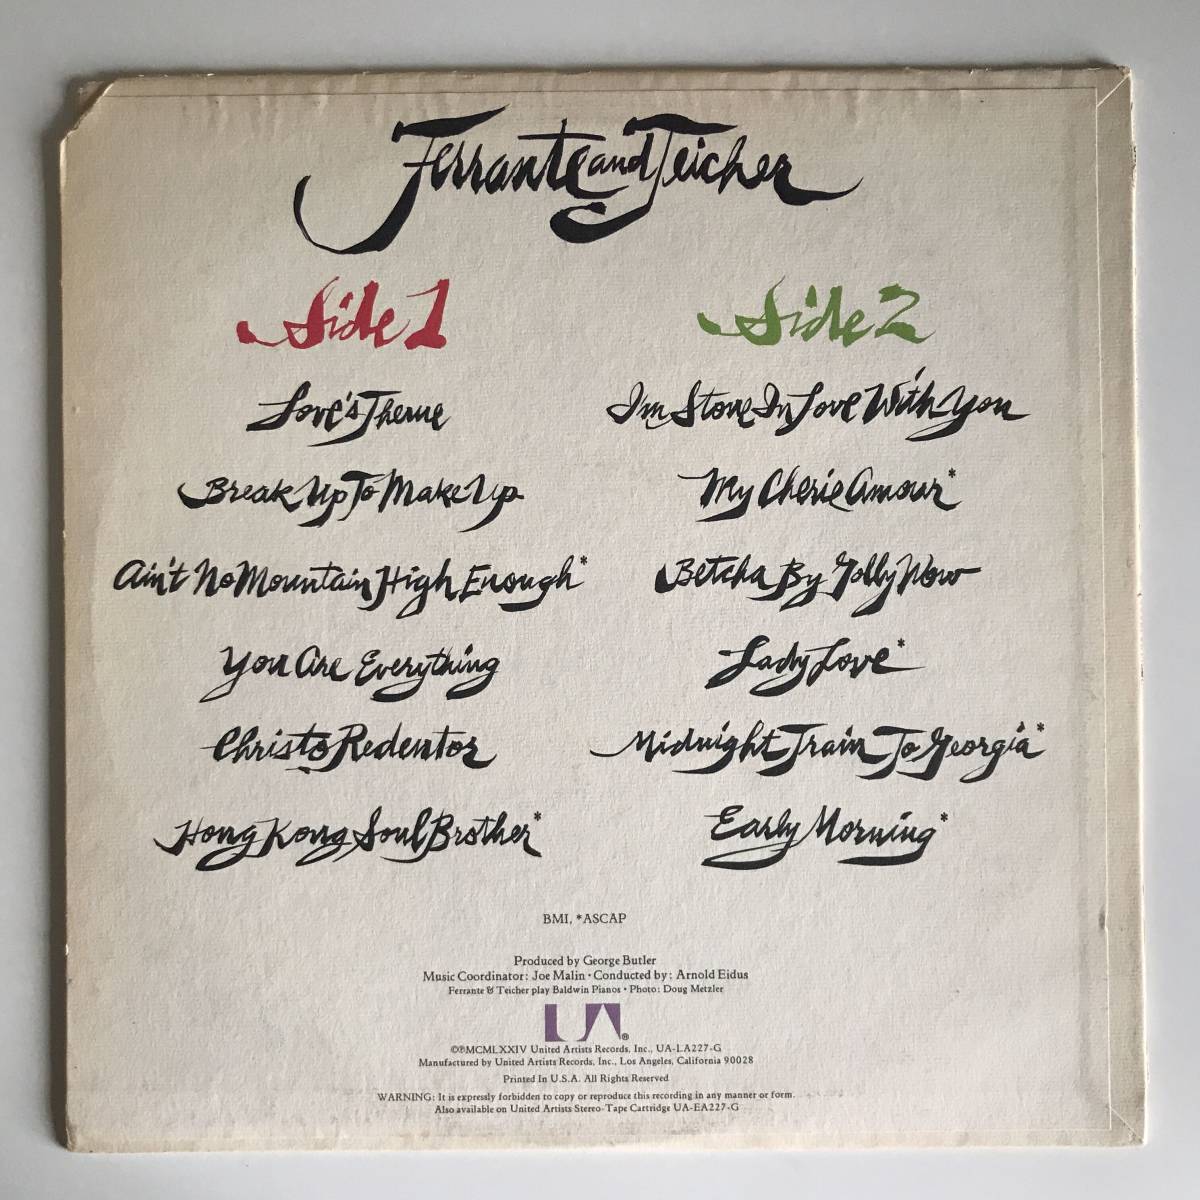 Ferrante and Teicher
Side 1
Love's Theme
Break Up To Make Up
Ain't No Mountain High Enough*
You Are Everything
Christo Redentor
Hong Kong Soul Brother*
Side 2
I'm Stone In Love With You
My Cherie Amour*
Betcha By Golly Wow
Lady Love*
Midnight Train To Georgia*
Early Morning*
BMI, *ASCAP
Produced by George Butler
Music Coordinator: Joe Malin • Conducted by: Arnold Eidus
Ferrante & Teicher play Baldwin Pianos • Photo: Doug Metzler
UA®
©℗MCMLXXIV United Artists Records, Inc., UA-LA227-G
Manufactured by United Artists Records, Inc., Los Angeles, California 90028
Printed In U.S.A. All Rights Reserved
WARNING: It is expressly forbidden to copy or reproduce this recording in any manner or form.
Also available on United Artists Stereo-Tape Cartridge UA-EA227-G